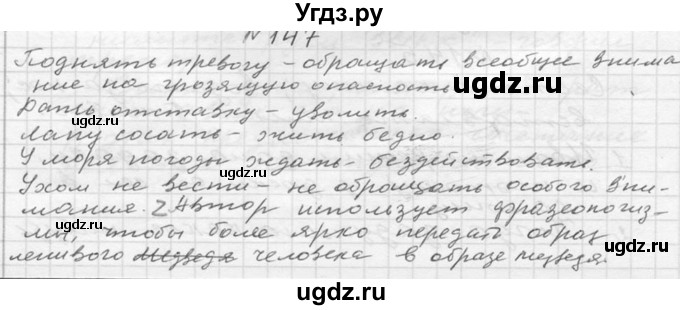 Угдз.ру
N 147
Поднять тревогу – обращать всеобщее внима
ние на грозящую опасность
Дать отставку – уволить.
Лапу сосать – жить бедно.
У моря погоды ждать – бездействовать.
Ухом не вести – не обращать особого вни-
мания. 2 Автор использует фразеологиз-
мы, чтобы более ярко передать образ
ленивого медведя человека в образе медведя.
ugdz.ru
ugdz.ru
ugdz.ru
ugdz.ru
ugdz.ru
ugdz.ru
ugdz.ru